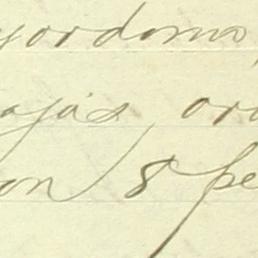 yordomo,
ajas, or
on 8 pe